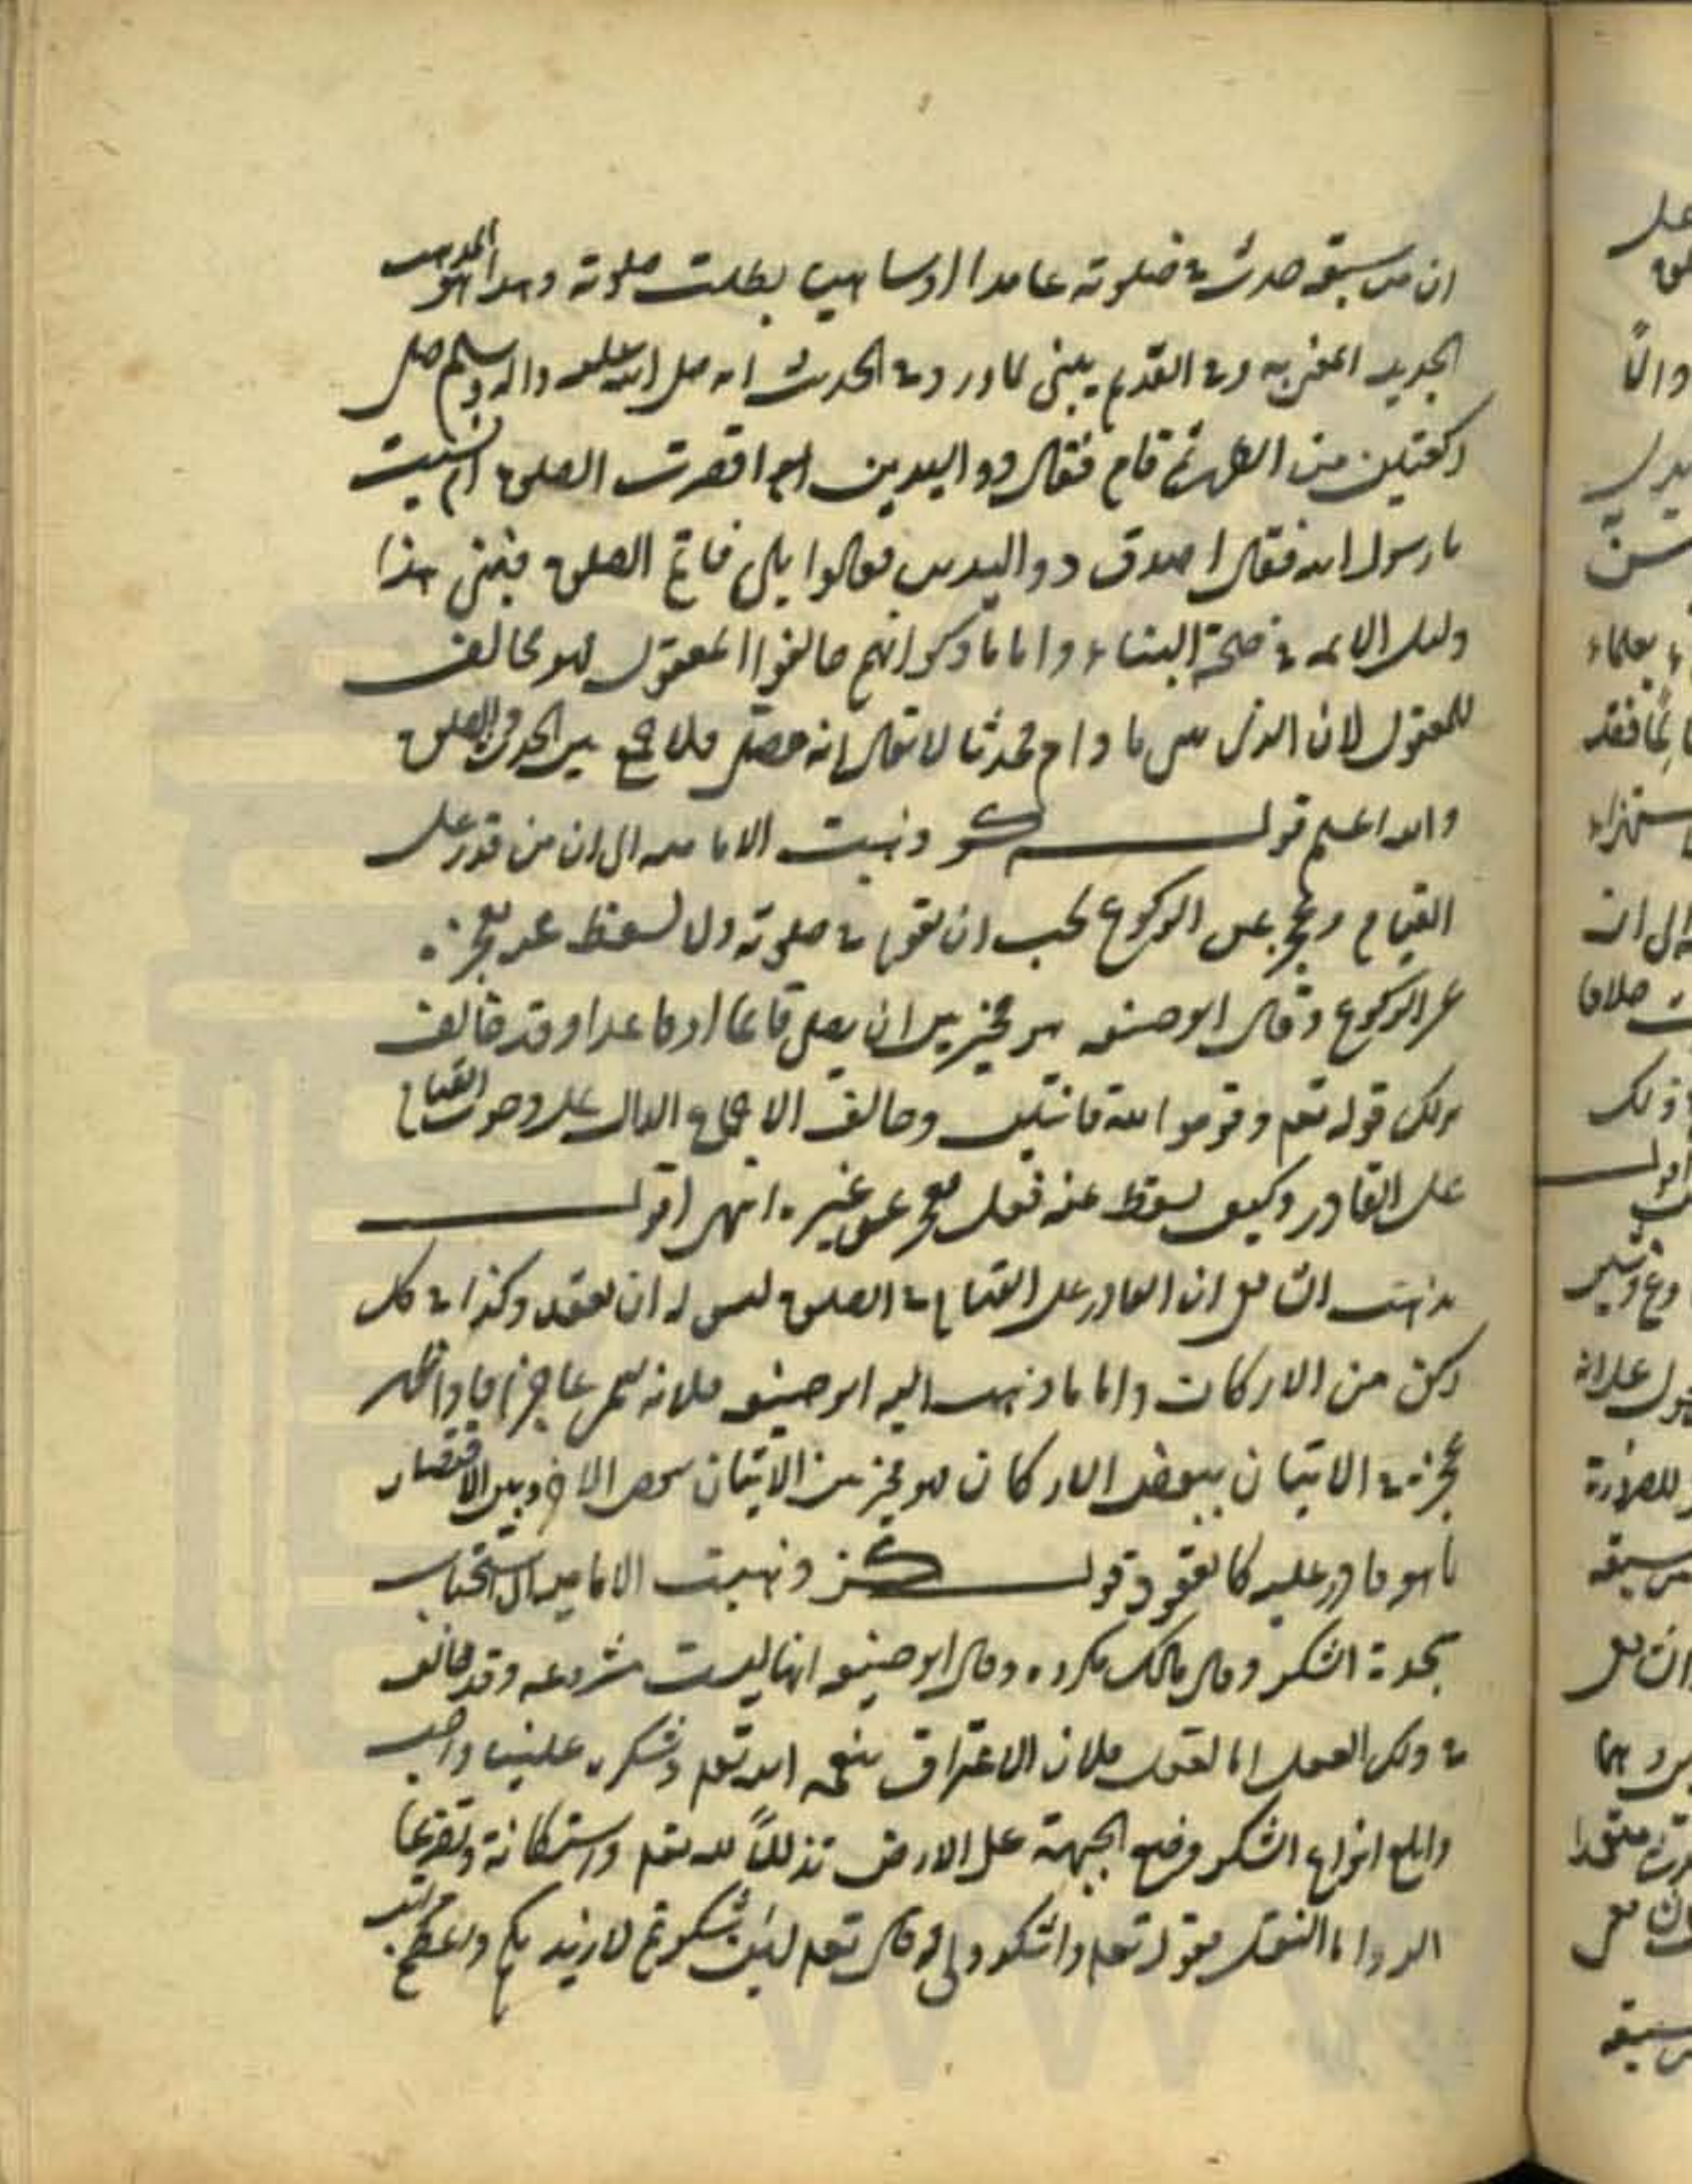 ان من سبقه حدث في صلوته عامدا او ساهيا بطلت صلوته وهذا هو المذهب
الجديد المفتى به وفي القديم يبني لما ورد في الحديث انه صلى الله عليه واله وسلم صلى
ركعتين من الظهر ثم قام فقال ذو اليدين اقصرت الصلوة ام نسيت
يا رسول الله فقال اصدق ذو اليدين فقالوا بلى فاتم الصلوة فبنى هذا
دليل الائمة في صحة البناء واما ما ذكر انهم خالفوا المعقول فهو مخالف
للمعقول لان الذي ما دام محدثا لا يقال انه مصل فلا جمع بين الحدث والصلوة
والله اعلم قول كو وذهبت الامامية الى ان من قدر على
القيام وعجز عن الركوع يجب ان يقوم في صلوته ولا يسقط عنه بعجزه
عن الركوع وقال ابو حنيفة هو مخير بين ان يصلي قائما او قاعدا وقد خالف
بذلك قوله تعم وقوموا لله قانتين وخالف الاجماع الدال على وجوب القيام
على القادر وكيف يسقط عنه فعل عجز عن غيره انتهى اقول
مذهب الشافعي ان القادر على القيام في الصلوة ليس له ان يقعد وكذا في كل
ركن من الاركان واما ما ذهب اليه ابو حنيفة فلانه عاجزا فاذا ظهر
عجزه في الاتيان ببعض الاركان فهو مخير بين الاتيان ببعض الاخر وبين الاقتصار
بما هو قادر عليه كالقعود قول كز وذهبت الامامية الى استحباب
سجدة الشكر وقال مالك مكروه وقال ابو حنيفة انها ليست مشروعة وقد خالف
في ذلك العقل اما العقل فلان الاعتراف بنعمة الله تعم وشكره علينا واجب
وابلغ انواع الشكر وضع الجبهة على الارض تذللا لله تعم واستكانة وتضرعا
اليه واما النقل فقوله تعم واشكروا لي وقال تعم لئن شكرتم لازيدنكم